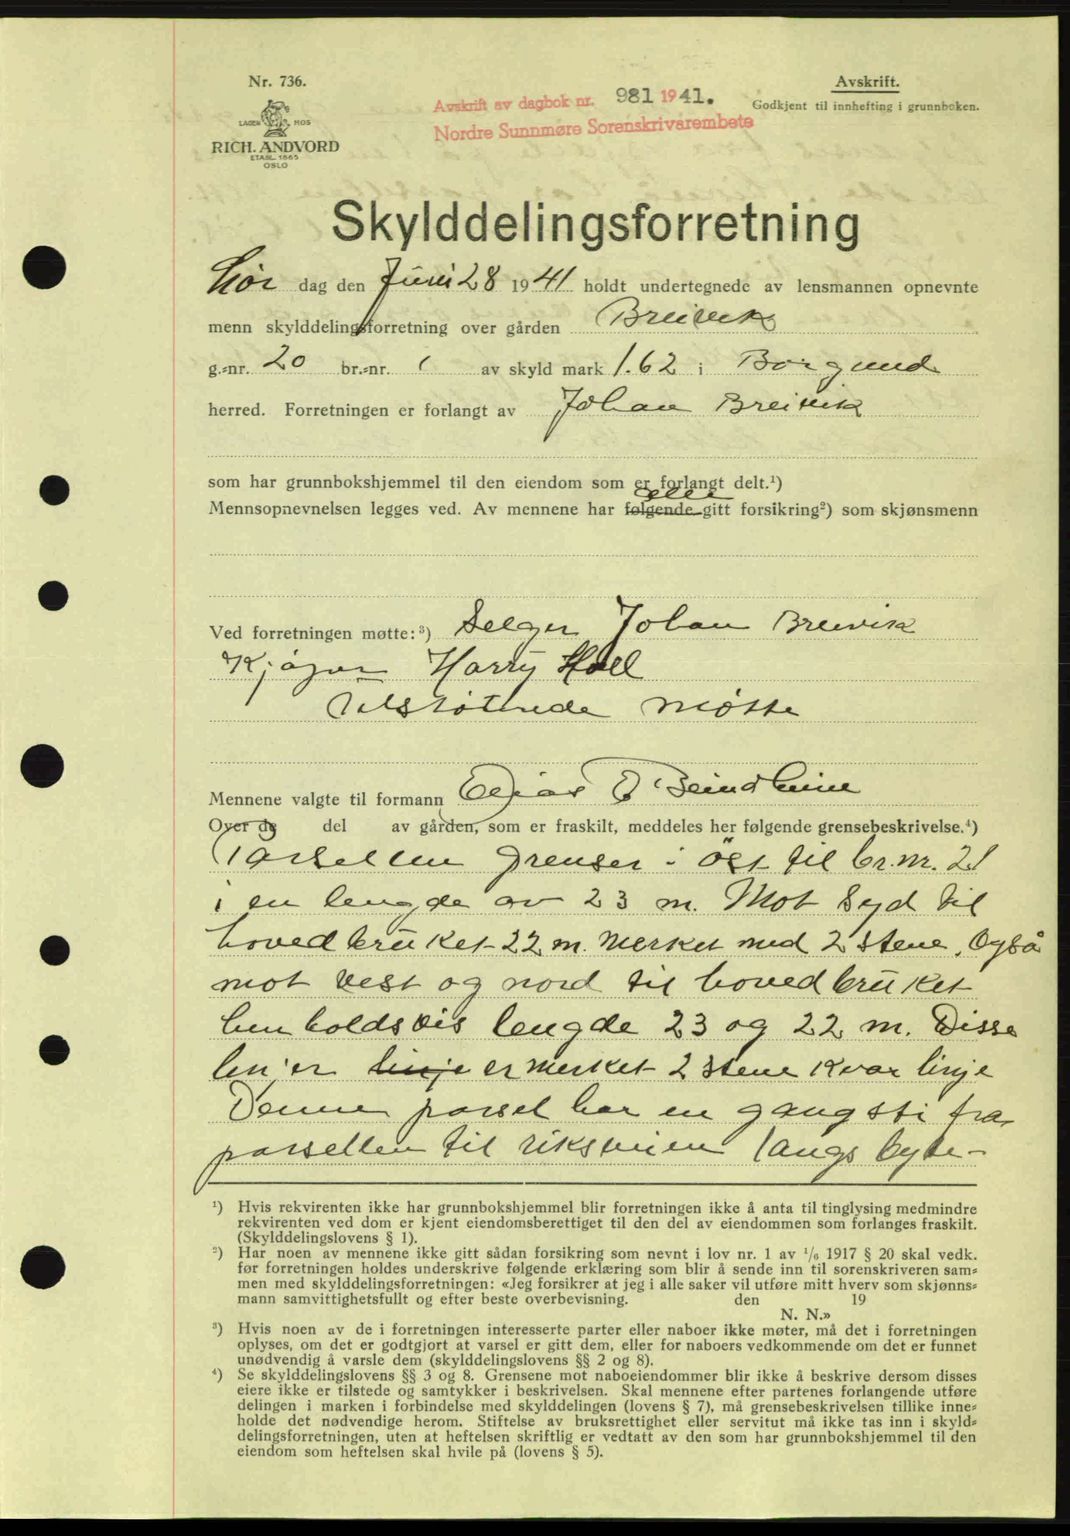 Nr. 736.
LAGER HOS
RICH. ANDVORD
ETABL. 1865
OSLO
Avskrift av dagbok nr. 981 1941.
Nordre Sunnmøre Sorenskrivarembete
Avskrift.
Godkjent til innhefting i grunnboken.
Skylddelingsforretning
Lør dag den Juni 28 1941 holdt undertegnede av lensmannen opnevnte
menn skylddelingsforretning over gården Breivik
g.-nr. 20 br.-nr. 1 av skyld mark 1.62 i Borgund
herred. Forretningen er forlangt av Johan Breivik
som har grunnbokshjemmel til den eiendom som er forlangt delt.¹)
alle
Mennsopnevnelsen legges ved. Av mennene har følgende gitt forsikring²) som skjønsmenn
Ved forretningen møtte:³) Selger Johan Breivik
Kjøper Harry Holl
Tilstøtende møtte
Mennene valgte til formann Elias E Beindheim
Over de del av gården, som er fraskilt, meddeles her følgende grensebeskrivelse.⁴)
Parsellen grenser i öst til br.nr. 21
i en lengde av 23 m. Mot Syd til
hovedbruket 22 m. merket med 2 stene. Også
mot vest og nord til hovedbruket
henholdsvis lengde 23 og 22 m. Disse
linjer linje er merket 2 stene kvar linje
Denne parsel har en gangsti fra
parsellen til riksveien langs byte-
¹) Hvis rekvirenten ikke har grunnbokshjemmel blir forretningen ikke å anta til tinglysing medmindre
rekvirenten ved dom er kjent eiendomsberettiget til den del av eiendommen som forlanges fraskilt.
(Skylddelingslovens § 1).
²) Har noen av mennene ikke gitt sådan forsikring som nevnt i lov nr. 1 av 1/6 1917 § 20 skal vedk.
før forretningen holdes underskrive følgende erklæring som blir å sende inn til sorenskriveren sam-
men med skylddelingsforretningen: «Jeg forsikrer at jeg i alle saker vil utføre mitt hverv som skjønns-
mann samvittighetsfullt og efter beste overbevisning. den 19
N. N.»
³) Hvis noen av de i forretningen interesserte parter eller naboer ikke møter, må det i forretningen
oplyses, om det er godtgjort at varsel er gitt dem, eller for naboers vedkommende om det er funnet
unødvendig å varsle dem (skylddelingslovens §§ 2 og 8).
⁴) Se skylddelingslovens §§ 3 og 8. Grensene mot naboeiendommer blir ikke å beskrive dersom disses
eiere ikke er tilstede og samtykker i beskrivelsen. Skal mennene efter partenes forlangende utføre
delingen i marken i forbindelse med skylddelingen (lovens § 7), må grensebeskrivelsen tillike inne-
holde det nødvendige herom. Stiftelse av bruksrettighet eller servitut må ikke tas inn i skyld-
delingsforretningen, uten at heftelsen skriftlig er vedtatt av den som har grunnbokshjemmel til den
eiendom som heftelsen skal hvile på (lovens § 5).